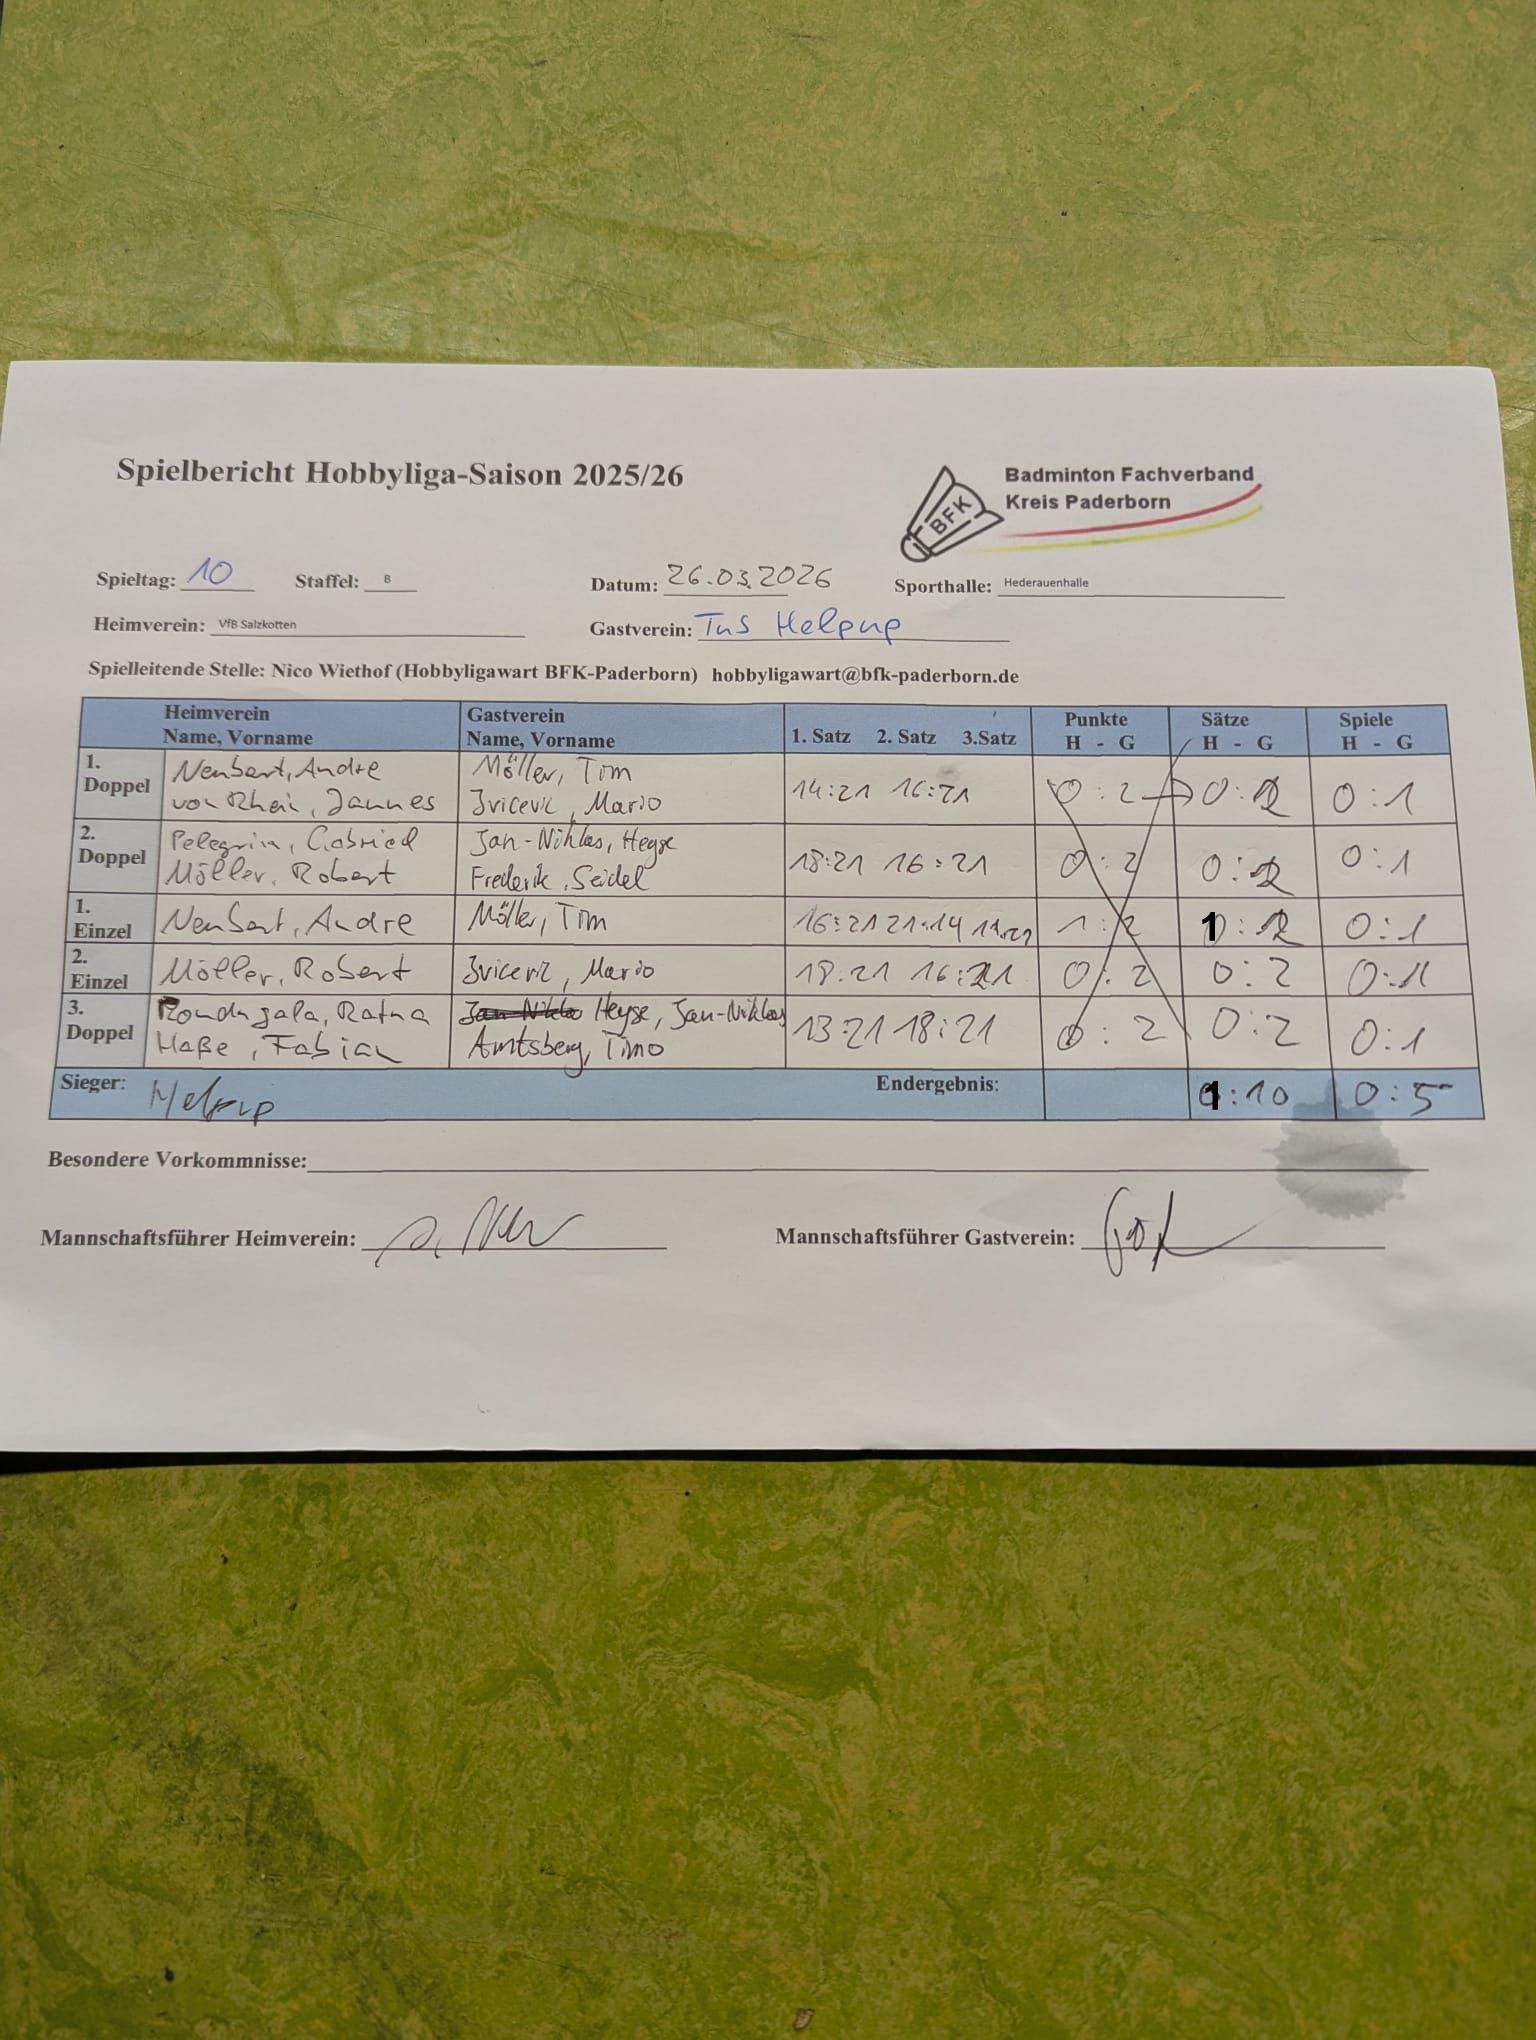 Spielbericht Hobbyliga-Saison 2025/26
BFK
Badminton Fachverband
Kreis Paderborn
Spieltag: 10 Staffel: B Datum: 26.03.2026 Sporthalle: Hederauenhalle
Heimverein: VfB Salzkotten Gastverein: TuS Helpup
Spielleitende Stelle: Nico Wiethof (Hobbyligawart BFK-Paderborn) hobbyligawart@bfk-paderborn.de
Heimverein Gastverein Punkte Sätze Spiele
Name, Vorname Name, Vorname 1. Satz 2. Satz 3.Satz H - G H - G H - G
1. Doppel Neubert, Andre Möller, Tim 14:21 16:21 0:2 0:2 0:1
von Rhein, Jannes Ivicevic, Mario
2. Doppel Pelegrin, Gabriel Jan-Niklas, Heyse 18:21 16:21 0:2 0:2 0:1
Möller, Robert Frederik, Seidel
1. Einzel Neubert, Andre Möller, Tim 16:21 21:14 11:21 1:2 1:2 0:1
2. Einzel Möller, Robert Ivicevic, Mario 18:21 16:21 0:2 0:2 0:1
3. Doppel Ratna Heyse, Jan-Niklas 13:21 18:21 0:2 0:2 0:1
Haße, Fabian Amtsberg, Timo
Sieger: Helpup Endergebnis: 1:10 0:5
Besondere Vorkommnisse:
Mannschaftsführer Heimverein: Mannschaftsführer Gastverein: